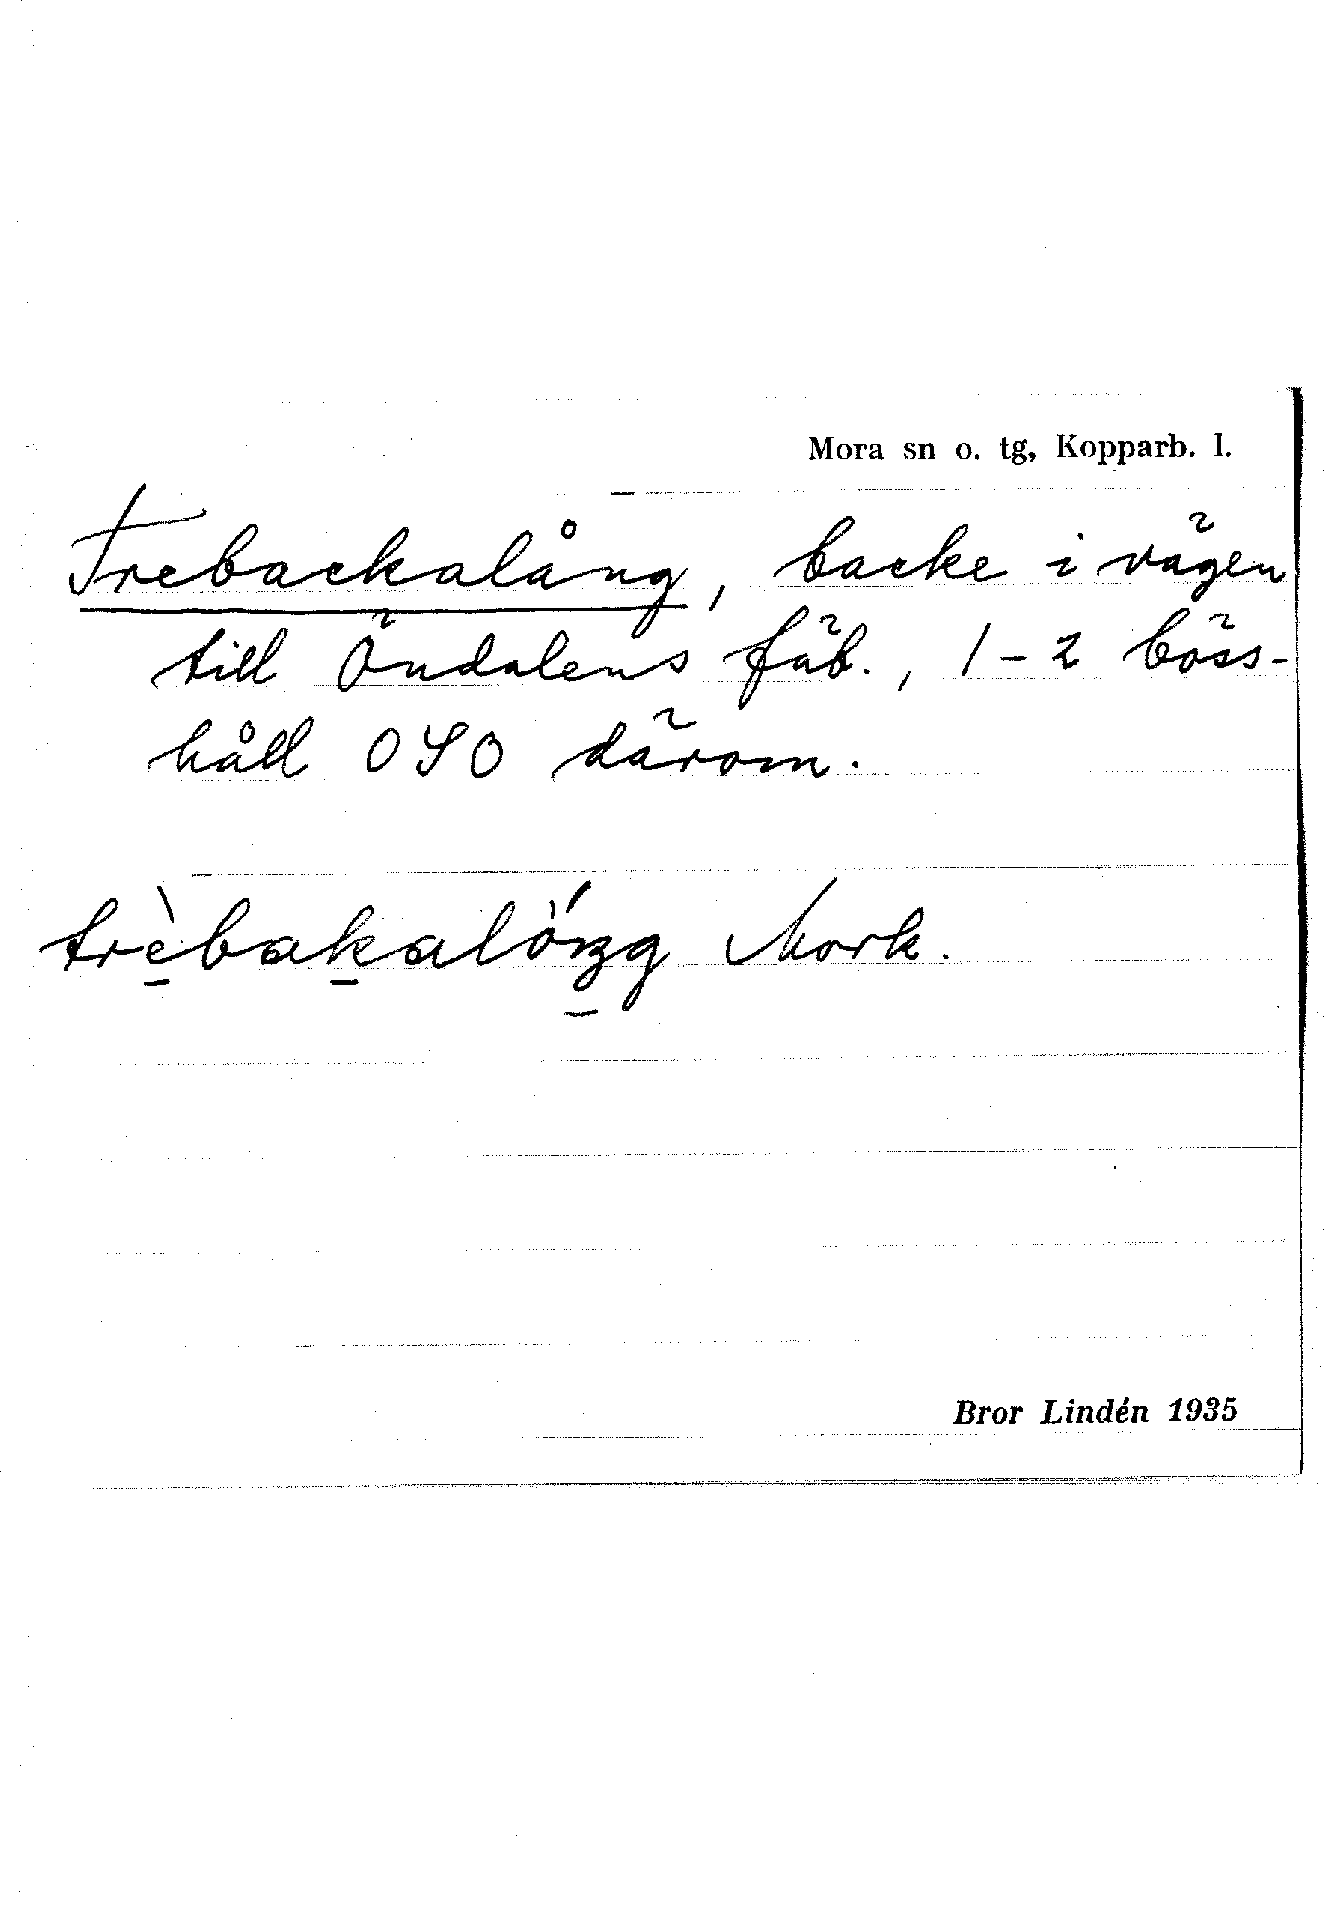 Mora sn o. tg, Kopparb. l.
Trebackalång, backe i vägen
till Öndalens fäb., 1-2 böss-
håll OSO därom.
trèbakalö́ŋg Mork.
Bror Lindén 1935